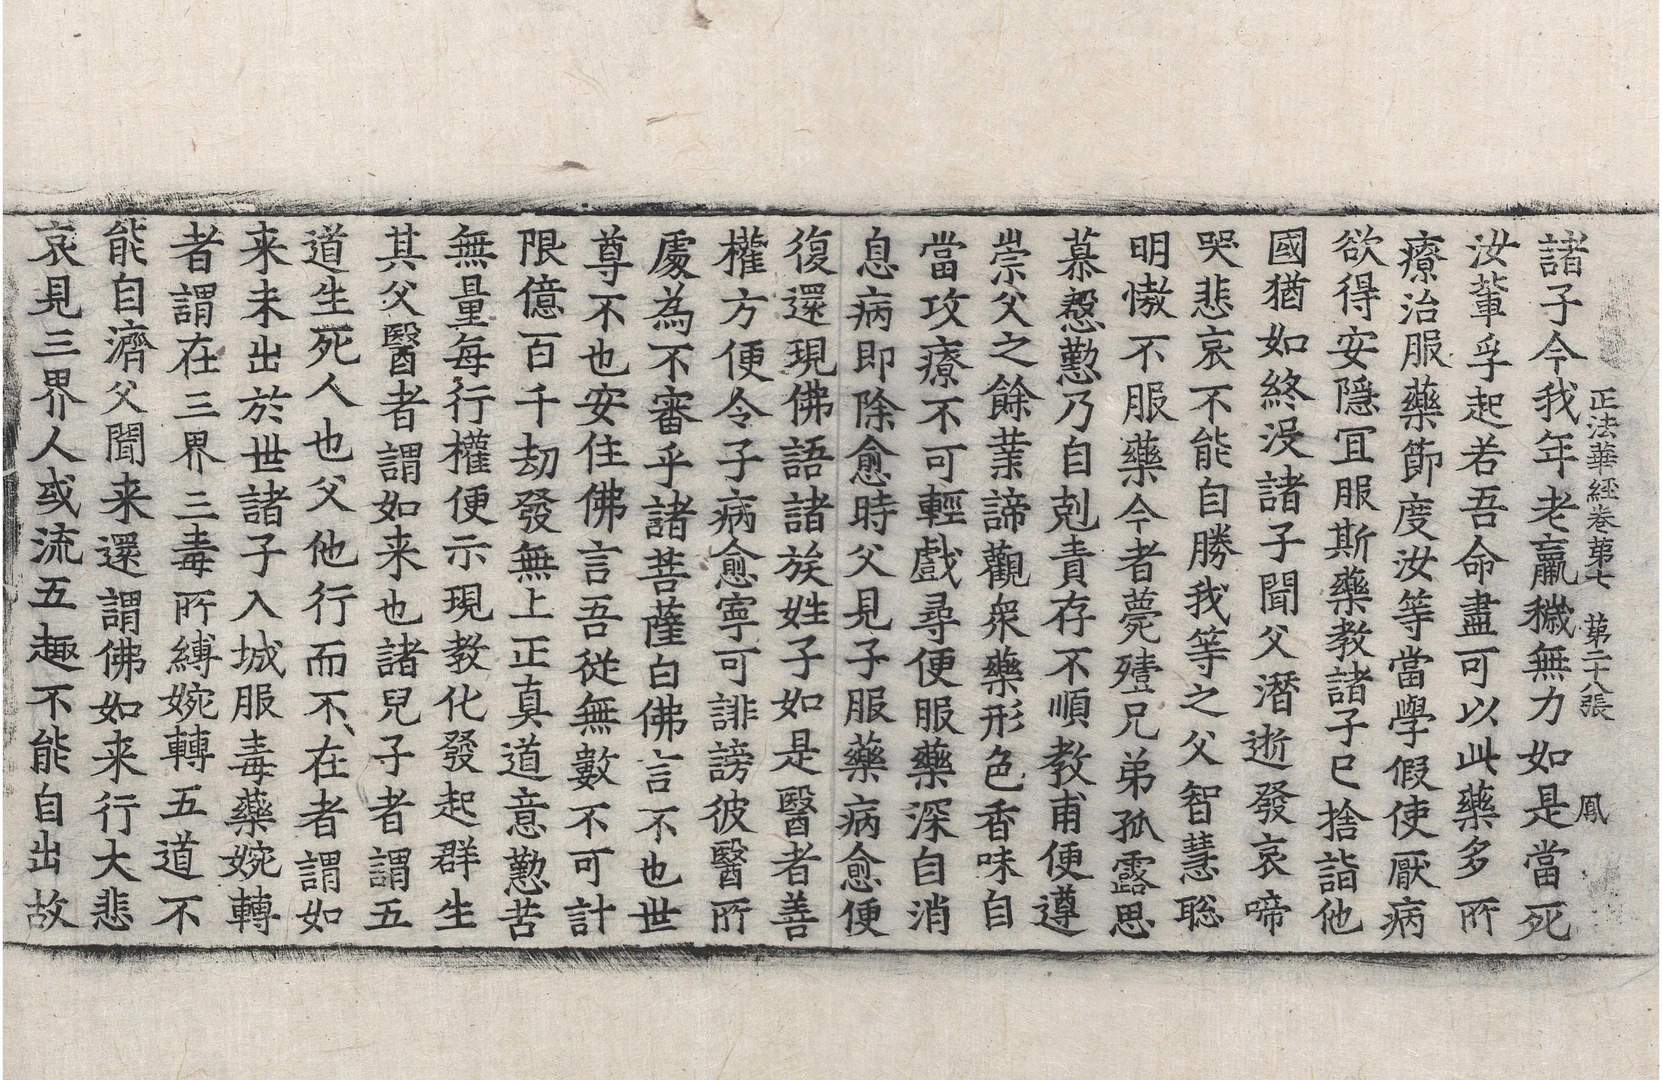 正法華經卷第七 第二十八張 鳳
諸子今我年老羸穢無力如是當死
汝輩孚起若吾命盡可以此藥多所
療治服藥節度汝等當學假使厭病
欲得安隱冝服斯藥教諸子已捨詣他
國猶如終没諸子聞父潛逝發哀啼
哭悲哀不能自勝我等之父智慧聡
明慠不服藥今者薨殪兄弟孤露思
慕慇懃乃自剋責存不順教甫便遵
崇父之餘業諦觀衆藥形色香味自
當攻療不可輕戲尋便服藥深自消
息病即除愈時父見子服藥病愈便
復還現佛語諸族姓子如是醫者善
權方便令子病愈寧可誹謗彼醫所
處為不審乎諸菩薩白佛言不也世
尊不也安住佛言吾從無數不可計
限億百千劫發無上正真道意懃苦
無量每行權便示現教化發起群生
其父醫者謂如来也諸兒子者謂五
道生死人也父他行而不在者謂如
来未出於世諸子入城服毒藥婉轉
者謂在三界三毒所縛婉轉五道不
能自濟父聞来還謂佛如来行大悲
哀見三界人或流五趣不能自出故